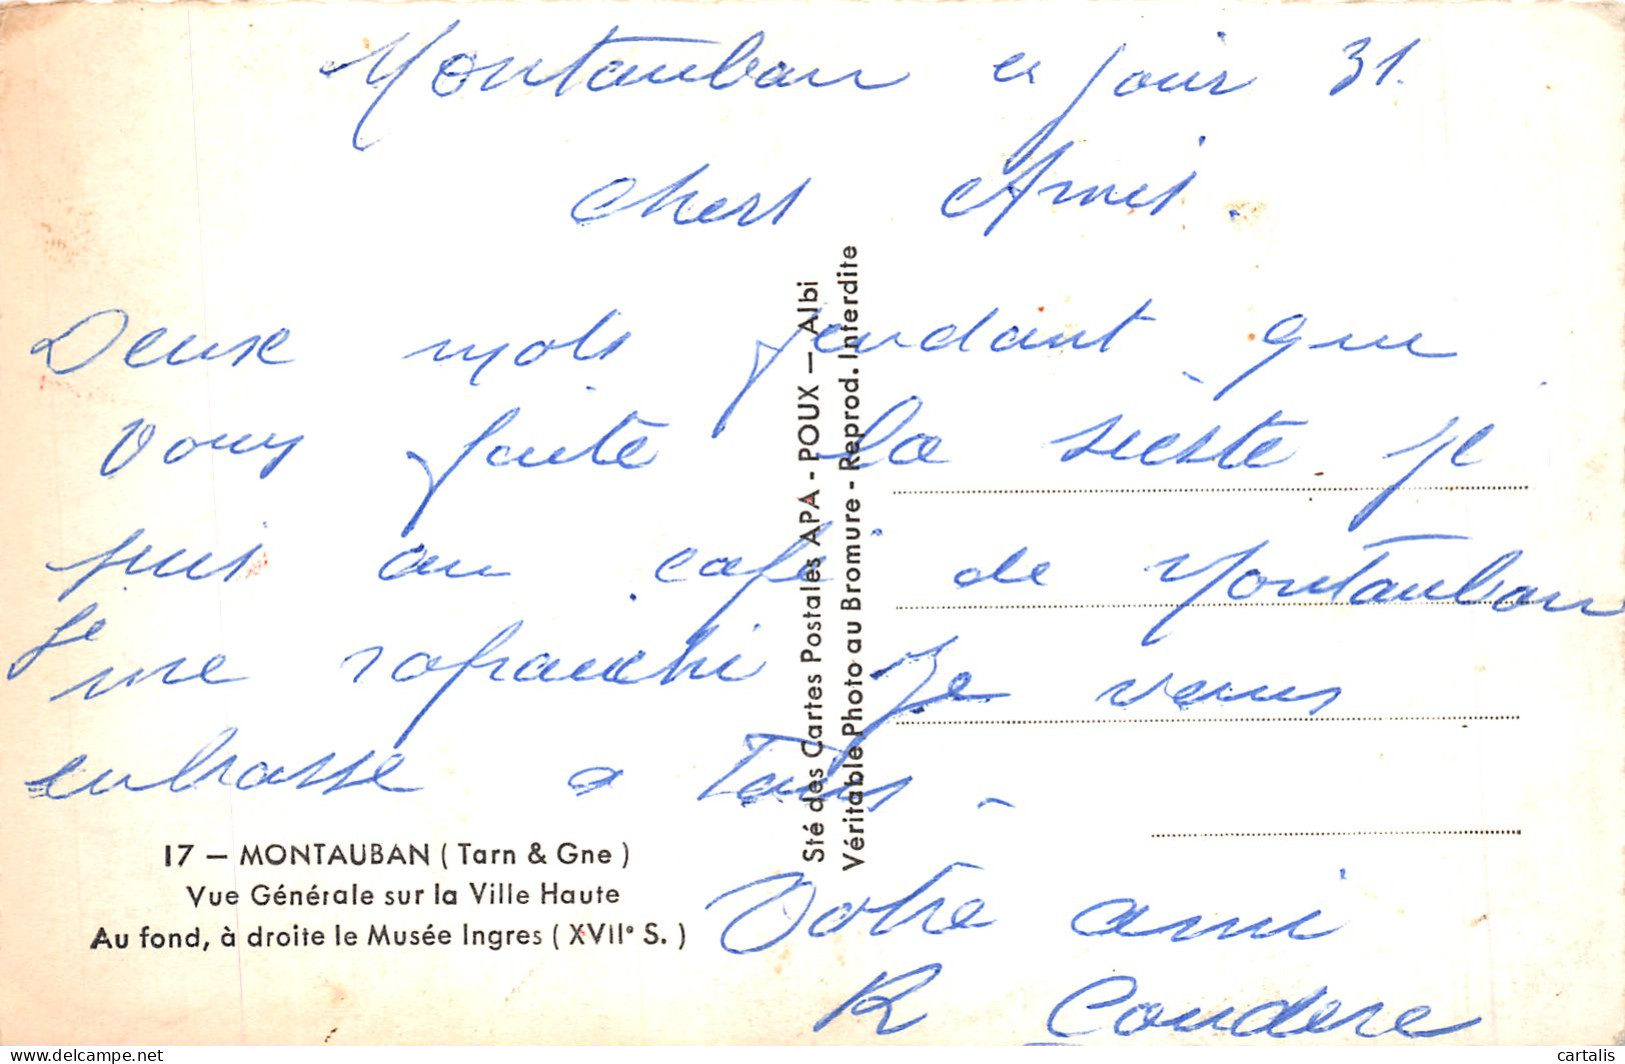 Montauban ce jour 31.
Chers Amis.
Deuxe mots pendant que
vous faite la sieste je
suis au café de Montauban
Je me rafraichi Je venus
enbrasse a Tous -
Votre ami
R Coudere
17 — MONTAUBAN ( Tarn & Gne )
Vue Générale sur la Ville Haute
Au fond, à droite le Musée Ingres ( XVII° S. )
Sté des Cartes Postales APA - POUX — Albi
Véritable Photo au Bromure - Reprod. Interdite
cartalis